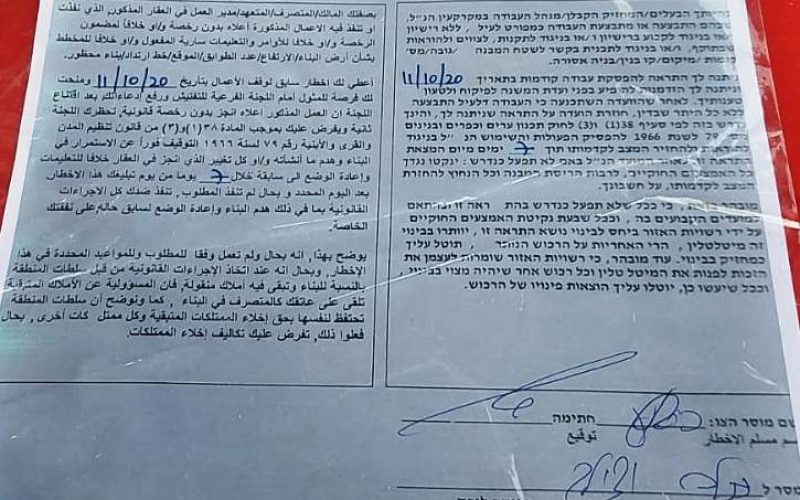 בצפתך הבעלים/המחזיק הקבלן/מנהל העבודה במקרקעין הנ"ל,
שבהם התבצעה או מתבצעת עבודה כמפורט לעיל, ללא רישיון
או בניגוד לקבוע ברישיון ו/או בניגוד לתקנות, לצווים ולהוראות
שבתוקף, ו/או בניגוד לתכנית בקשר לשטח המבנה / גובה/מס'
קומות/מיקום/קו בנין/בניה אסורה.
ניתנה לך התראה להפסקת עבודה קודמת בתאריך 11/10/20
וניתנה לך הזדמנות להופיע בפני ועדת המשנה לפיקוח ולטעון
טענותיך. לאחר שהוועדה השתכנעה כי העבודה דלעיל התבצעה
ללא כל היתר שבדין, חוזרת הועדה על התראה שניתנה לך, והינך
נדרש בזה לפי סעיף 38(1) ו(3) לחוק תכנון ערים וכפרים ובניינים
לשנת 1966 להפסיק הפעולות והשימוש הנ"ל בניגוד
ולהחזיר המצב לקדמותו תוך 7 ימים מיום המצאת
התראה זו
האמצעים החוקיים, לרבות הריסת המבנה וכל הנחוץ להחזרת
המצב לקדמותו, על חשבונך.
כי ככל שלא תפעל כנדרש בהתראה זו ובהתאם
למועדים הקבועים בה, וככל שבעת נקיטת האמצעים החוקיים
על ידי רשויות האזור ביחס לבינוי נושא התראה זו, יוותרו בבינוי
זה מיטלטלין, הרי האחריות על הרכוש הנותר, תוטל עליך
כמחזיק בבינוי. עוד מובהר, כי רשויות האזור שומרות לעצמן את
הזכות לפנות את המיטלטלין וכל רכוש אחר שיהיה מצוי בבינוי,
וככל שיעשו כן, יוטלו עליך הוצאות פינויו של הרכוש.
بصفتك المالك/المتصرف/المتعهد/مدير العمل في العقار المذكور الذي نفذت
او تنفذ فيه الاعمال المذكورة أعلاه بدون رخصة و/او خلافا لمضمون
الرخصة و/او خلافا للأوامر والتعليمات سارية المفعول و/او خلافا للمخطط
بشأن أرض البناء/الارتفاع/عدد الطوابق/الموقع/خط ارتداد/بناء محظور.
أعطي لك اخطار سابق لوقف الأعمال بتاريخ 11/10/20 ومنحت
لك فرصة للمثول امام اللجنة الفرعية للتفتيش ورفع إدعاءاتك. بعد اقتناع
اللجنة ان العمل المذكور اعلاه انجز بدون رخصة قانونية, تحظرك اللجنة
ثانية ويفرض عليك بموجب المادة ٣٨(١) و(٣) من قانون تنظيم المدن
والقرى والأبنية رقم ٧٩ لسنة ١٩٦٦ التوقيف فورا عن الاستمرار في
البناء وهدم ما أنشأته و/أو كل تغيير الذي انجز في العقار خلافا للتعليمات
وإعادة الوضع الى سابقه خلال 7 يوما من يوم تبليغك هذا الاخطار.
بعد اليوم المحدد و بحال لم تنفذ المطلوب, تنفذ ضدك كل الاجراءات
القانونية بما في ذلك هدم البناء وإعادة الوضع لسابق حاله على نفقتك
الخاصة.
يوضح بهذا, انه بحال ولم تعمل وفقا للمطلوب وللمواعيد المحددة في هذا
الإخطار, وبحال انه عند اتخاذ الإجراءات القانونية من قبل سلطات المنطقة
بالنسبة للبناء وتبقى فيه أملاك منقولة, فان المسؤولية عن الاملاك المتبقية
تلقى على عاتقك كالمتصرف في البناء, كما ونوضح أن سلطات المنطقة
تحتفظ لنفسها بحق إخلاء الممتلكات المتبقية وكل ممتلكات أخرى, بحال
فعلوا ذلك, تفرض عليك تكاليف إخلاء الممتلكات.
שם מוסר הצו: חתימה
اسم مسلم الاخطار توقيع
נמסר ל